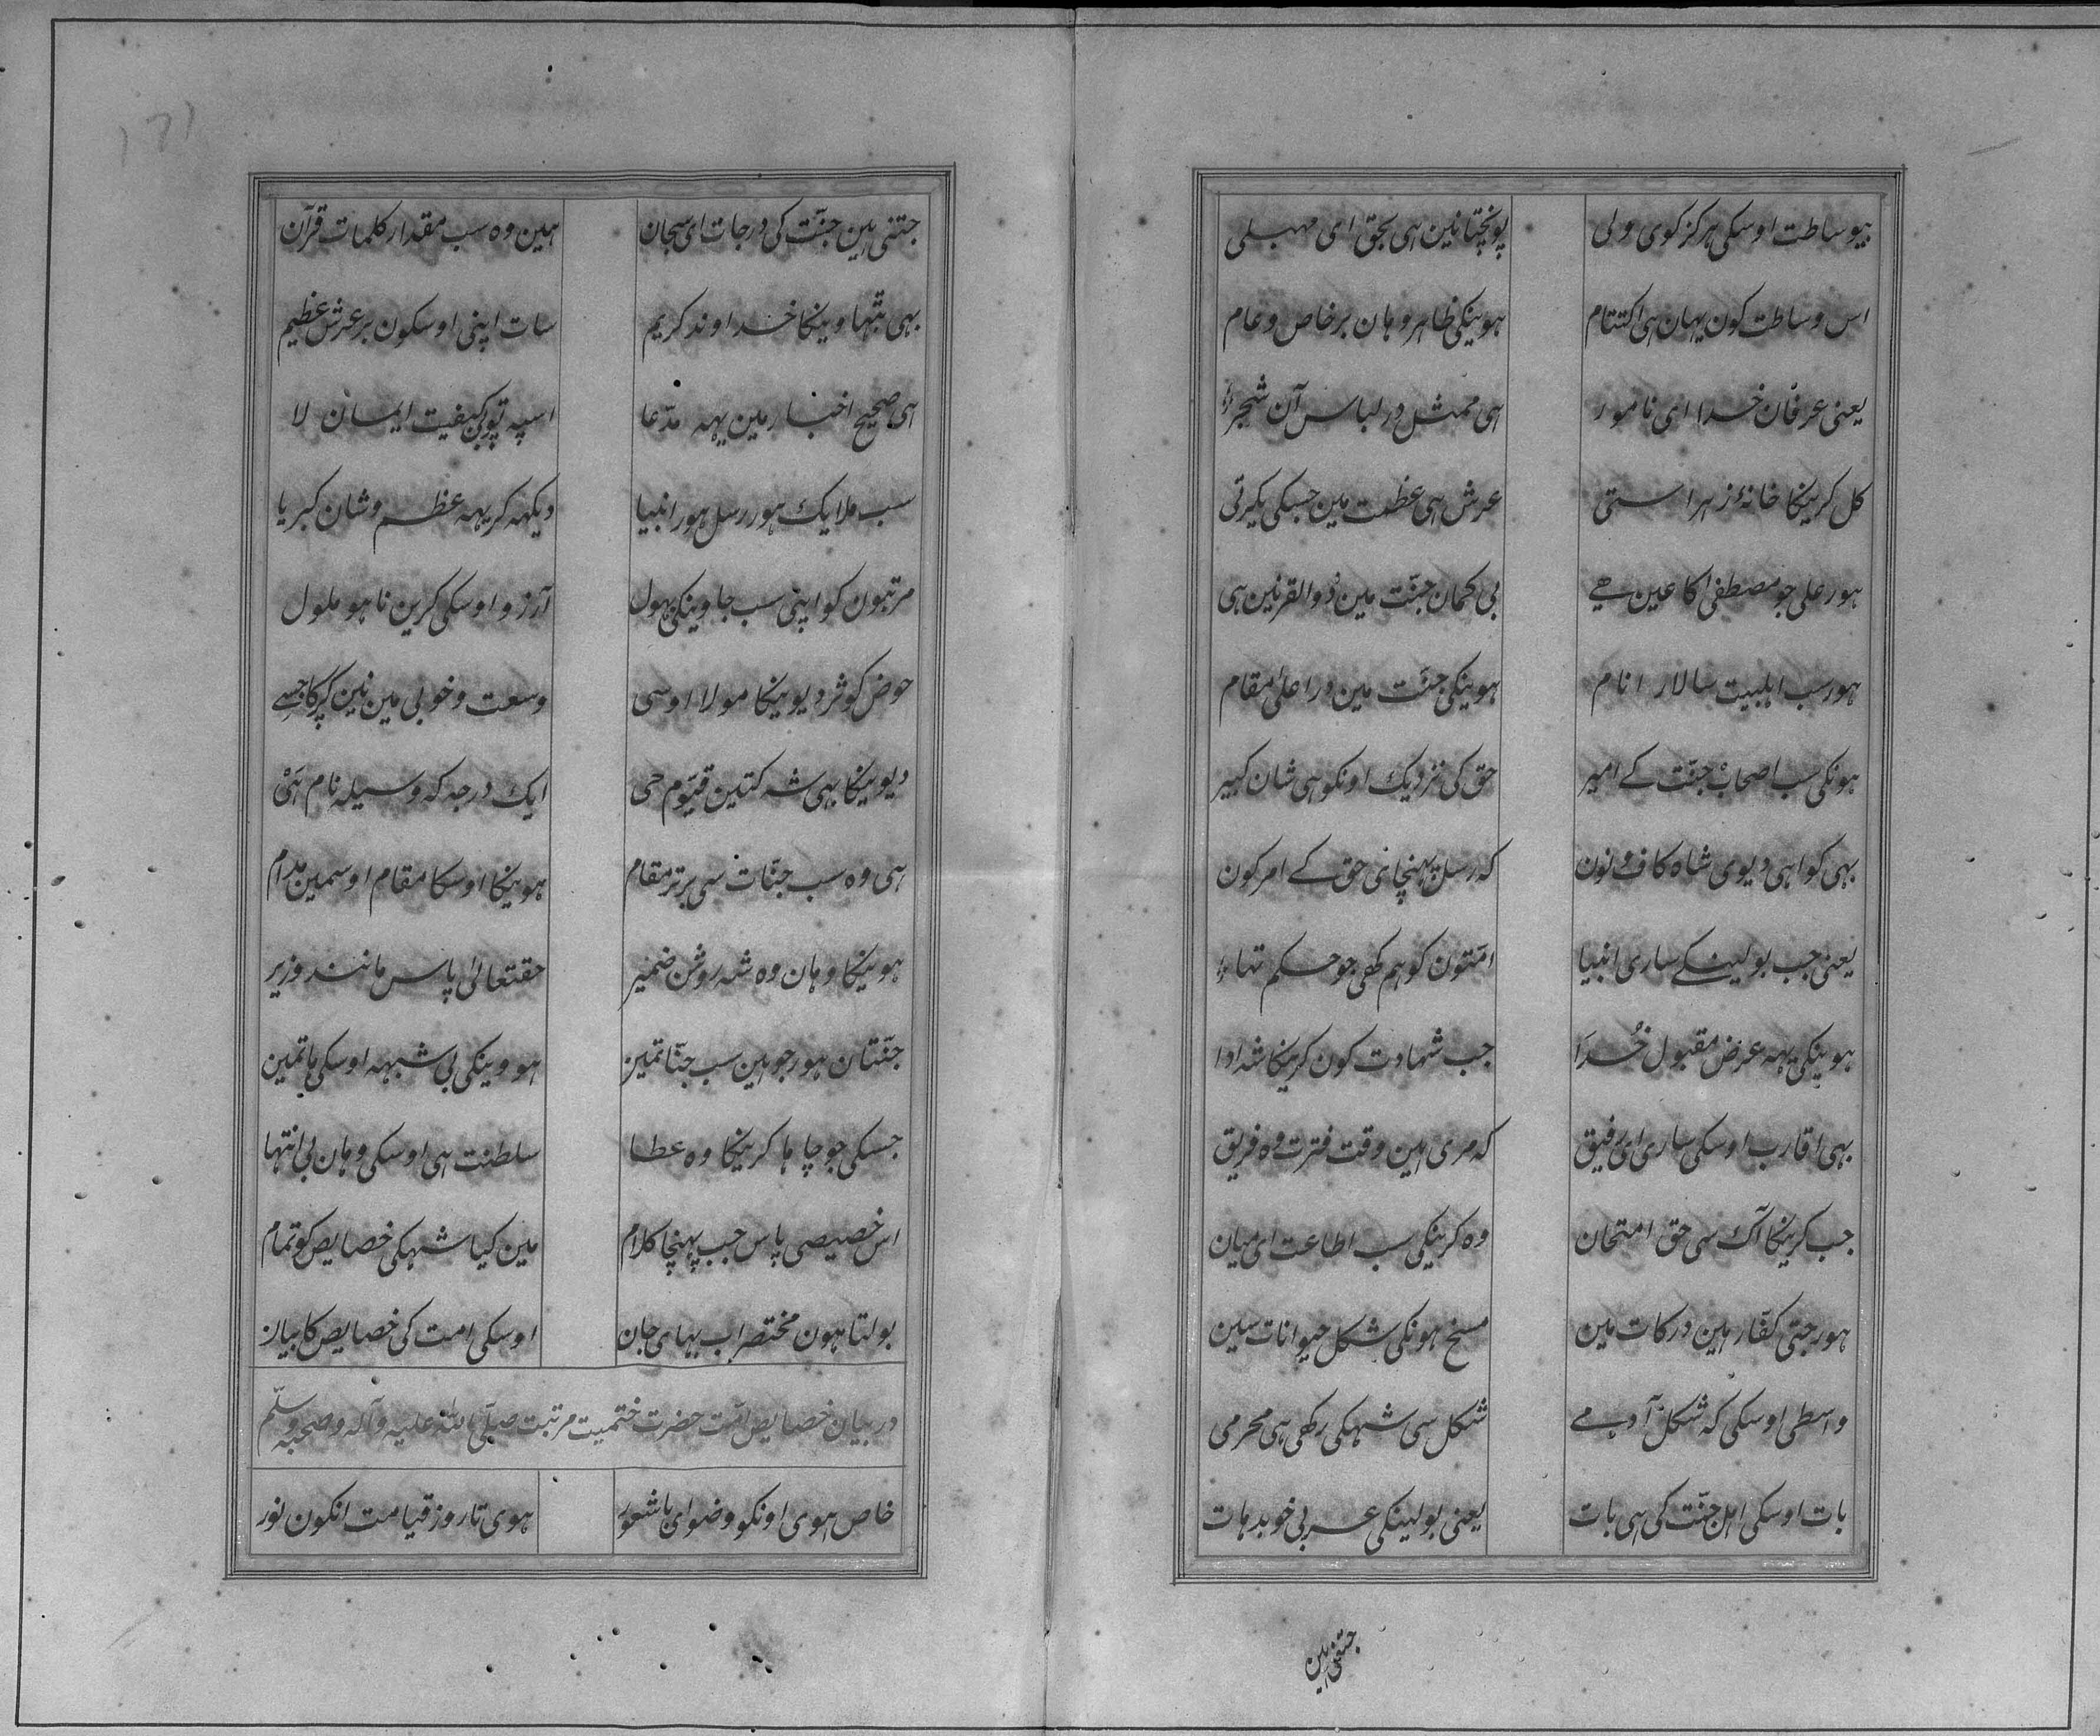 بیوساطت اوسکی هرکز کوی ولی پونچتا نین هی بحق ای مهبلی
اس وساطت کون یهان هی اکتتام هوینکی ظاهر وهان بر خاص و عام
یعنی عرفان خدا ای نامور هی ممثل در لباس آن شجر
کل کرینکا خانهٔ زهرا ستی عرش هی عظمت مین جسکی یکیرتی
هور علی جو مصطفی کا عین هے بی کمان جنّت مین ذوالقرنین هی
هور سب اهلبیت سالار انام هوینکی جنّت مین در اعلیٰ مقام
هونکی سب اصحاب جنّت کے امیر حق کی نزدیک اونکو هی شان کبیر
بهی کواهی دیوی شاه کاف و نون که رسل پهنچانی حق کے امر کون
یعنی جب بولینکے ساری انبیا امّتون کو هم کهی جو حکم تها
هوینکی یهه عرض مقبول خُدا جب شهادت کون کرینکا شه ادا
بهی اقارب اوسکی ساری ای رفیق که مری هین وقت فترت وه فریق
جب کرینکا آک سی حق امتحان وه کرینکی سب اطاعت ای میان
هور جتی کفّار هین درکات مین مسخ هونکی شکل حیوانات سین
واسطی اوسکی که شکل آدمے شکل سی شهکی رکهی هی محرمی
بات اوسکی اهل جنّت کی هی بات یعنی بولینکی عربی خوبدهات
جتنی هین
جتنی هین جنّت کی درجات ای سجان هین وه سب مقدار کلمات قرآن
بهی بتهاوینکا خداوند کریم سات اپنی اوسکون بر عرش عظیم
هی صحیح اخبار مین یهه مدّعا اسپه تو بی کیفیت ایمان لا
سب ملایک هور رسل هور انبیا دیکهه کر یهه عظم و شان کبریا
مرتبون کو اپنی سب جاوینکی بهول آرزو اوسکی کرین نا هو ملول
حوض کوثر دیوینکا مولا اوسی وسعت و خوبی مین نین کپرکا جسے
دیوینکا بهی شه کتین قیّوم حی ایک درجه که وسیله نام هَی
هی وه سب جنّات سی برتر مقام هوینکا اوسکا مقام اوسمین مدام
هوینکا وهان وه شه روشن ضمیر حقتعالیٰ پاس مانند وزیر
جنّتان هور جو هین سب جنّاتمین هووینکی بی شبهه اوسکی هاتمین
جسکی جو چاها کرینکا وه عطا سلطنت هی اوسکی وهان بی انتها
اس خصیصی پاس جب پهنچا کلام مین کیا شهکی خصایص کو تمام
بولتا هون مختصر اب بهای جان اوسکی امت کی خصایص کا بیان
در بیان خصایص امّت حضرت ختمیت مرتبت صلّی الله علیه وآله وصحبه وسلّم
خاص هوی اونکو وضو ای باشعور هوی تا روز قیامت انکون نور